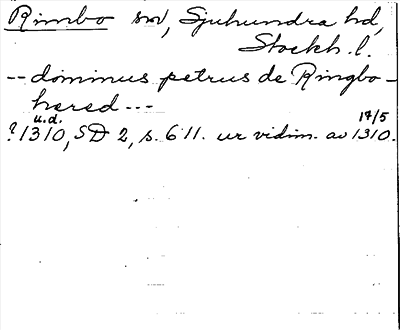 Rimbo sn, Sjuhundra hd,
Stockh. l.
-- dominus petrus de Ringbo-
hered ---
u.d. 17/5
? 1310, SD 2, s. 611. ur vidim. av 1310.